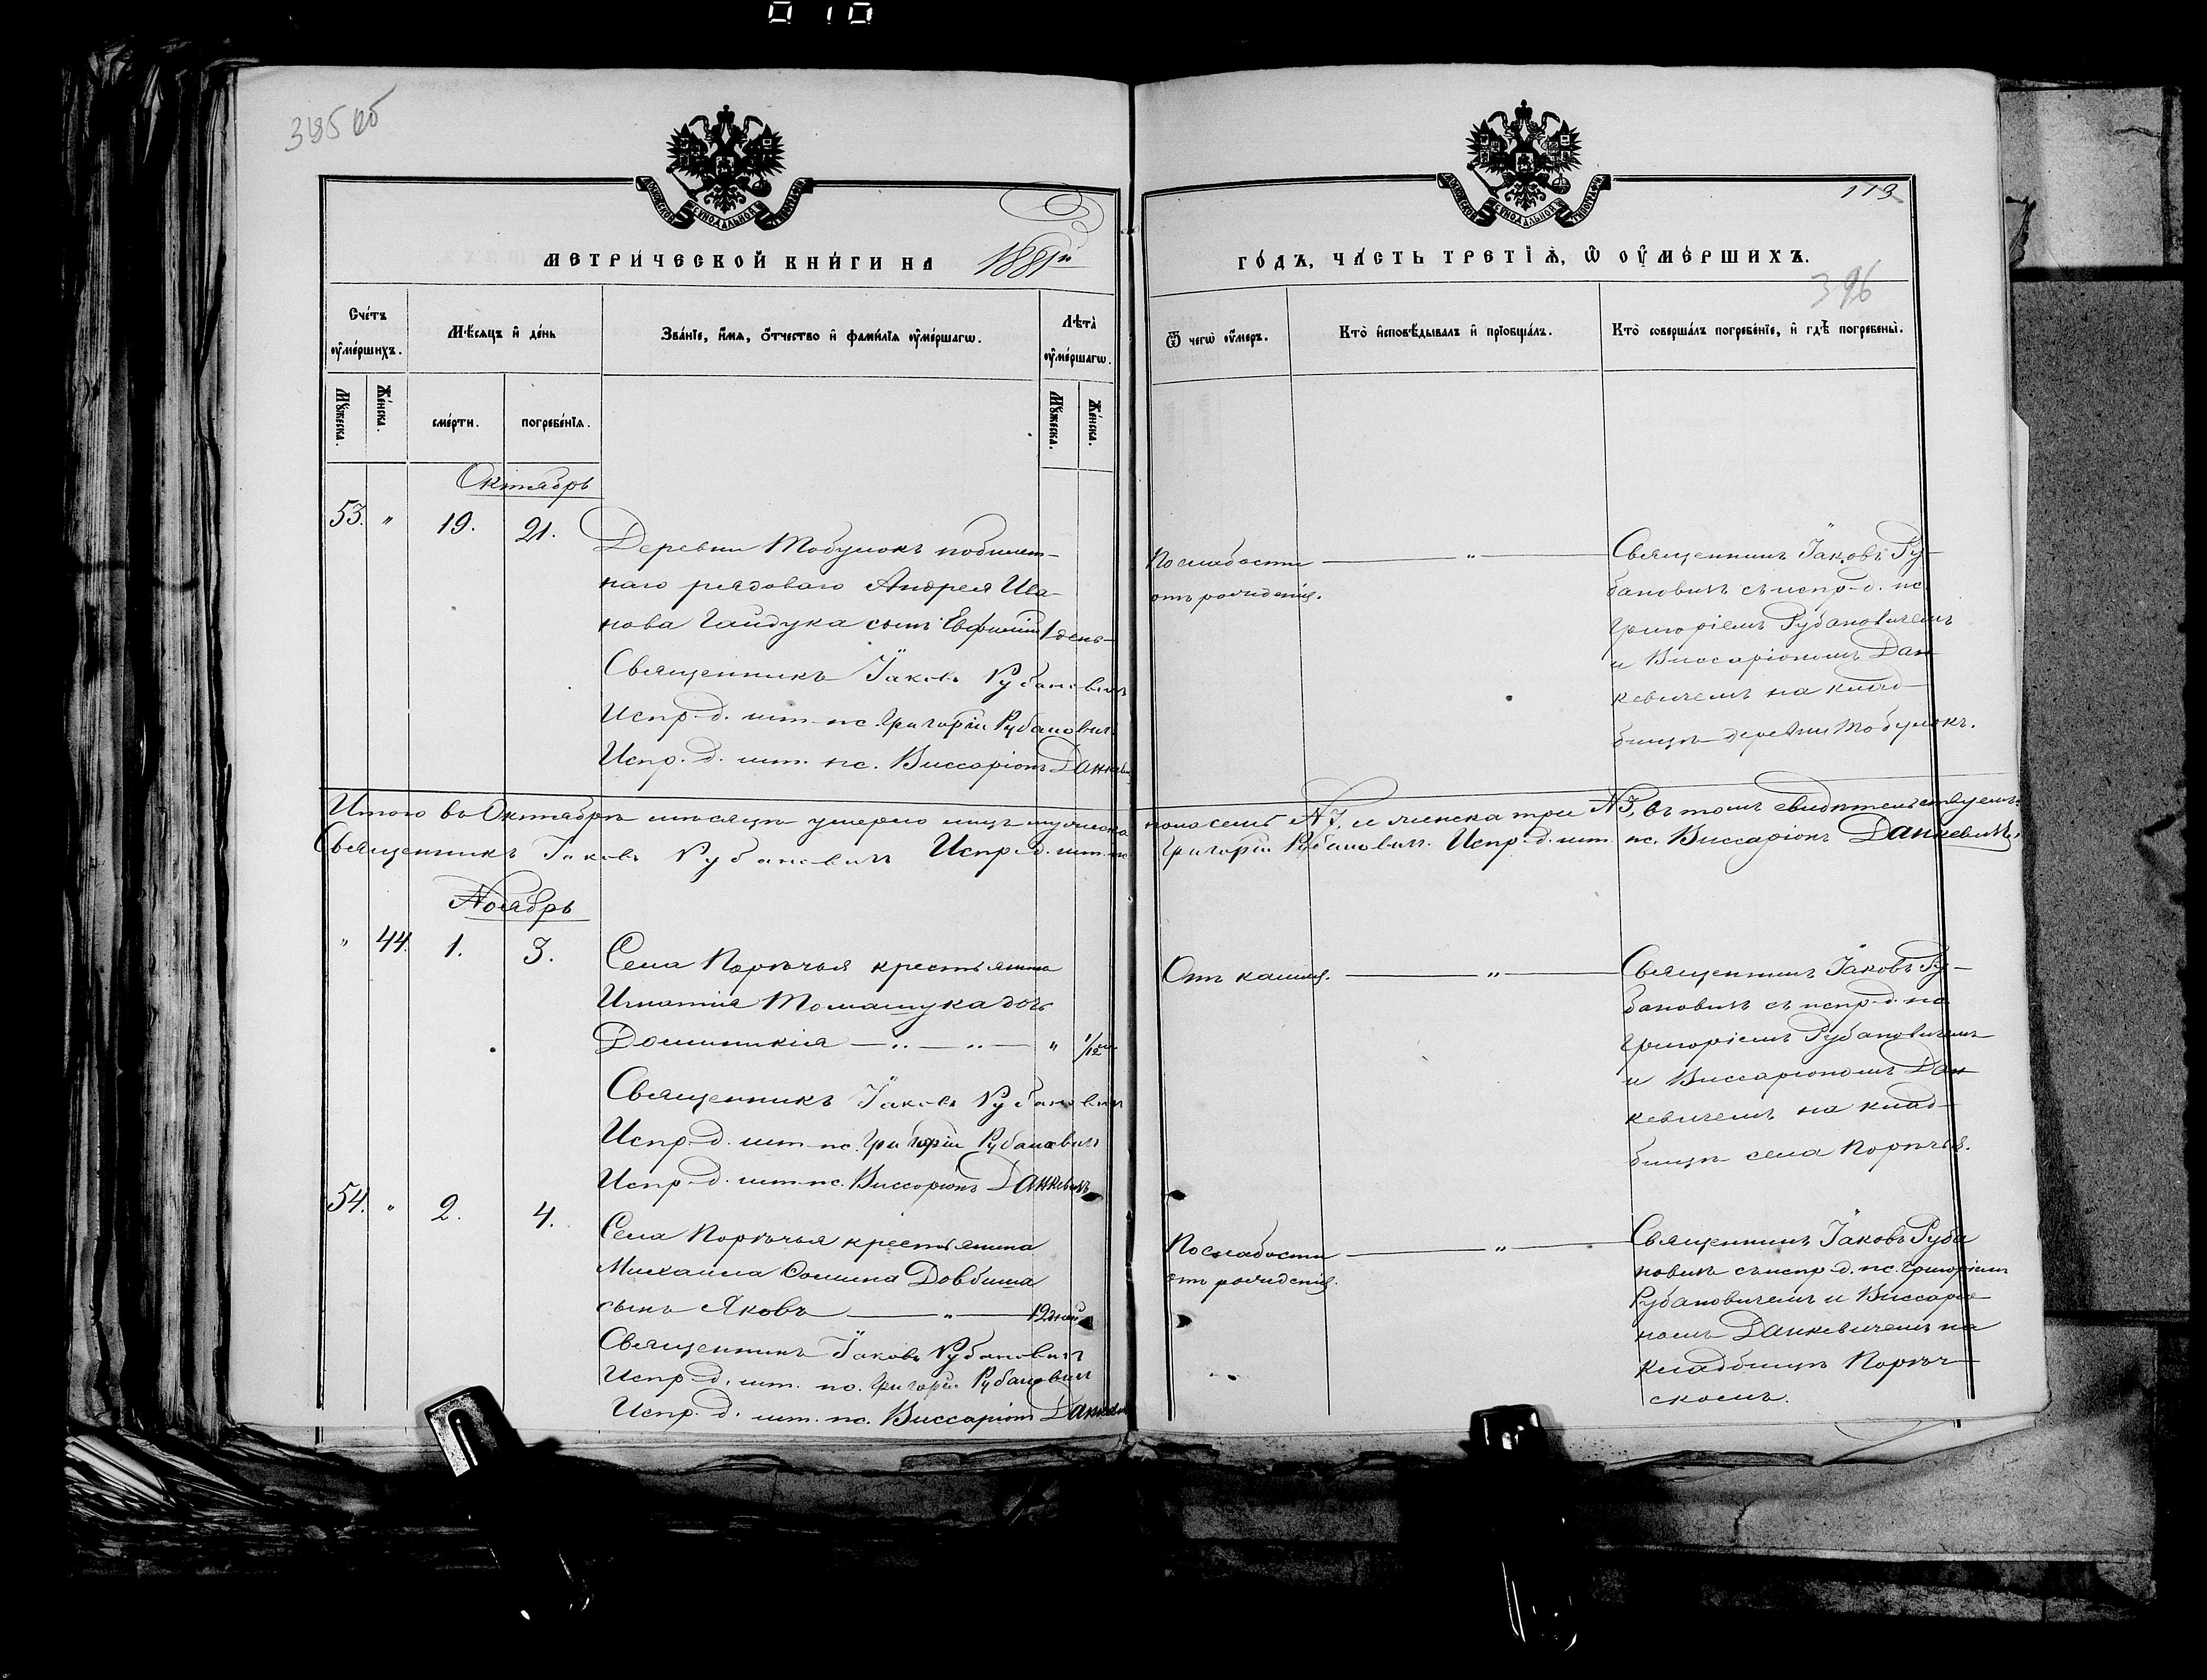 010
395 об
МЕТРИЧЕСКОЙ КНИГИ НА 1881й
ГОДЪ, ЧАСТЬ ТРЕТІѦ, Ѡ ОУМЕРШИХЪ.
113
396
МОСКОВСКОЙ СѴНОДАЛЬНОЙ ТИПОГРАФІИ
МОСКОВСКОЙ СѴНОДАЛЬНОЙ ТИПОГРАФІИ
Счетъ оумершихъ.
Мѣсяцъ и день
Званіе, имя, отчество и фамилія оумершагѡ.
Лѣта оумершагѡ.
Ѿ чегѡ оумеръ.
Кто исповѣдывалъ и пріобщалъ.
Кто совершалъ погребеніе, и гдѣ погребены.
Мꙋжеска.
Женска.
смерти.
погребенія.
Мꙋжеска.
Женска.
Октябрь
53. " 19. 21.
Деревни Тобулокъ побилет-
наго рядоваго Андрея Ива-
нова Гайдука сынъ Евфимій 1 день
Священникъ Іаковъ Рубановичъ
Испр. д. шт. пс. Григорій Рубановичъ
Испр. д. шт. пс. Виссаріонъ Данкевичъ
По слабости — " —
отъ рожденія.
Священникъ Іаковъ Ру-
бановичъ съ испр. д. пс.
Григоріемъ Рубановичемъ
и Виссаріономъ Дан
кевичемъ на клад-
бищѣ деревни Тобулокъ.
Итого въ Октябрѣ мѣсяцѣ умерло лицъ мужеска пола семь №7, и женска три №3, въ томъ свидѣтельствуемъ:
Священникъ Іаковъ Рубановичъ Испр. д. шт. пс. Григорій Рубановичъ. Испр. д. шт. пс. Виссаріонъ Данкевичъ.
Ноябрь
" 44. 1. 3.
Села Порѣчья крестьянина
Игнатія Томашука дочь
Доминикія — " — " — " 1/12
Священникъ Іаковъ Рубановичъ
Испр. д. шт. пс. Григорій Рубановичъ
Испр. д. шт. пс. Виссаріонъ Данкевичъ
Отъ кашля. — " —
Священникъ Іаковъ Ру-
бановичъ съ испр. д. пс
Григоріемъ Рубановичемъ
и Виссаріономъ Дан
кевичемъ на клад-
бищѣ села Порѣчья.
54. " 2. 4.
Села Порѣчья крестьянина
Михаила Довбиша
сынъ Яковъ — " — 12 дней
Священникъ Іаковъ Рубановичъ
Испр. д. шт. пс. Григорій Рубановичъ
Испр. д. шт. пс. Виссаріонъ Данкевичъ
По слабости — " —
отъ рожденія.
Священникъ Іаковъ Руба
новичъ съ испр. д. пс. Григоріемъ
Рубановичемъ и Виссаріо-
номъ Данкевичемъ на
кладбищѣ Порѣч-
скомъ.